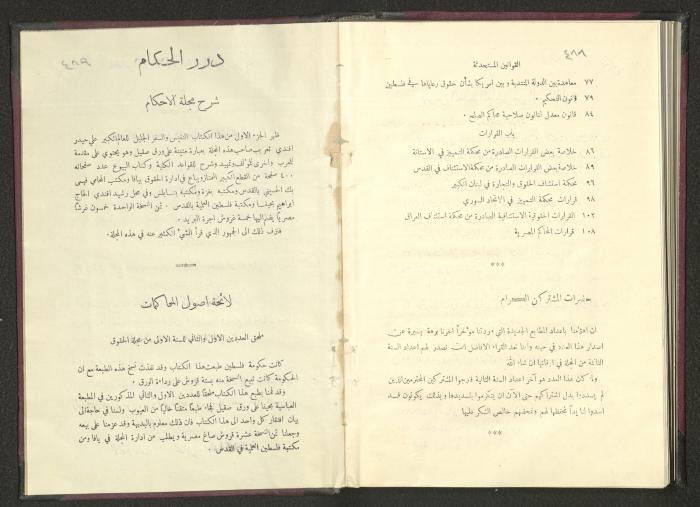 ٤٨٨
القوانين المستحدثة
٧٧ معاهدة بين الدولة المنتدبة وبين اميركا بشأن حقوق رعاياها في فلسطين
٧٩ قانون التحكيم .
٨٤ قانون معدل لقانون صلاحية محاكم الصلح .
باب القرارات
٨٦ خلاصة بعض القرارات الصادرة من محكمة التمييز في الاستانة
٨٩ خلاصة بعض القرارات الصادرة من محكمة الاستئناف في القدس
٩٦ محكمة استئناف الحقوق والتجارة في لبنان الكبير
٩٨ قرارات محكمة التمييز في الاتحاد السوري
١٠٢ القرارات الحقوقية الاستئنافية الصادرة من محكمة استئناف العراق
١٠٨ قرارات المحاكم المصرية
***
حضرات المشتركين الكرام
ان اهتمامنا باعداد المطابع الجديدة التي وردتنا مؤخراً اخرنا برهة يسيرة عن
اصدار هذا العدد في حينه واننا نعد القراء الافاضل ان نصدر لهم اعداد السنة
الثالثة من المجلة في اوقاتها ان شاء الله
ولما كان هذا العدد هو آخر اعداد السنة الثانية فنرجوا المشتركين المحترمين الذين
لم يسددوا بدل اشتراكهم حتى الآن ان يتكرموا بتسديدها وبذلك يكونون قد
اسدوا لنا يداً نحفظها لهم ونمحضهم خالص الشكر عليها
***
٤٨٩
درر الحكام
شرح مجلة الاحكام
ظهر الجزء الاول من هذا الكتاب النفيس والسفر الجليل للعالم الكبير علي حيدر
افندي تعريب صاحب هذه المجلة بعبارة متينة على ورق صقيل وهو يحتوي على مقدمة
للمعرب واخرى للمؤلف وتمهيد وشرح للقواعد الكلية وكتاب البيوع عدد صفحاته
٤٠٠ صفحة من القطع الكبير الممتاز ويباع في ادارة الحقوق بيافا ومكتب المحامي فهمي
بك الحسيني بالقدس ومكتبه بغزة ومكتبه بنابلس وفي محل رشيد افندي الحاج
ابراهيم بحيفا ومكتبة فلسطين العلمية بالقدس . ثمن النسخة الواحدة خمسون غرشاً
مصرياً يضم اليها خمسة غروش اجرة البريد .
فنزف ذلك الى الجمهور الذي قرأ الشيء الكثير عنه في هذه المجلة .
لائحة اصول المحاكمات
ملحق العددين الاول والثاني للسنة الاولى من مجلة الحقوق
كانت حكومة فلسطين طبعت هذا الكتاب وقد نفذت نسخ هذه الطبعة مع ان
الحكومة كانت تبيع النسخة منه بستة قروش على رداءة الورق .
وقد قمنا بطبع هذا الكتاب ملحقاً للعددين الاول والثاني المذكورين في المطبعة
العباسية بحيفا على ورق صقيل فجاء طبعاً متقناً خالياً من العيوب ولسنا في حاجة الى
بيان افتقار كل واحد الى هذا الكتاب فان ذلك معلوم بالبديهة وقد عزمنا على بيعه
وجعلنا ثمن النسخة عشرة قروش صاغ مصرية ويطلب من ادارة المجلة في يافا ومن
مكتبة فلسطين العلمية في القدس .